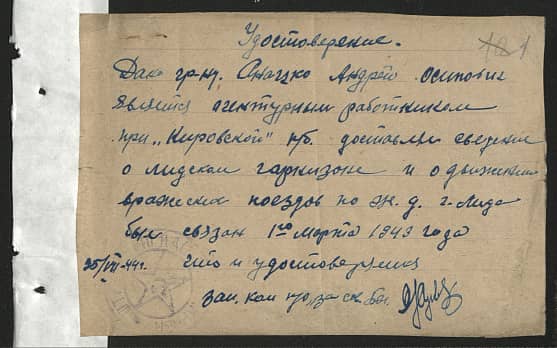 Удостоверение.
Дано гр-ну. Андрей Осипович
агентурным работником
при „Кировской" п/б. доставлял сведения
о лидском гарнизоне и о движении
вражеских поездов по ж. д. г. Лида
был связан 1го марта 1943 года
25/VIII-44г. что и удостоверяется
Зам. ком